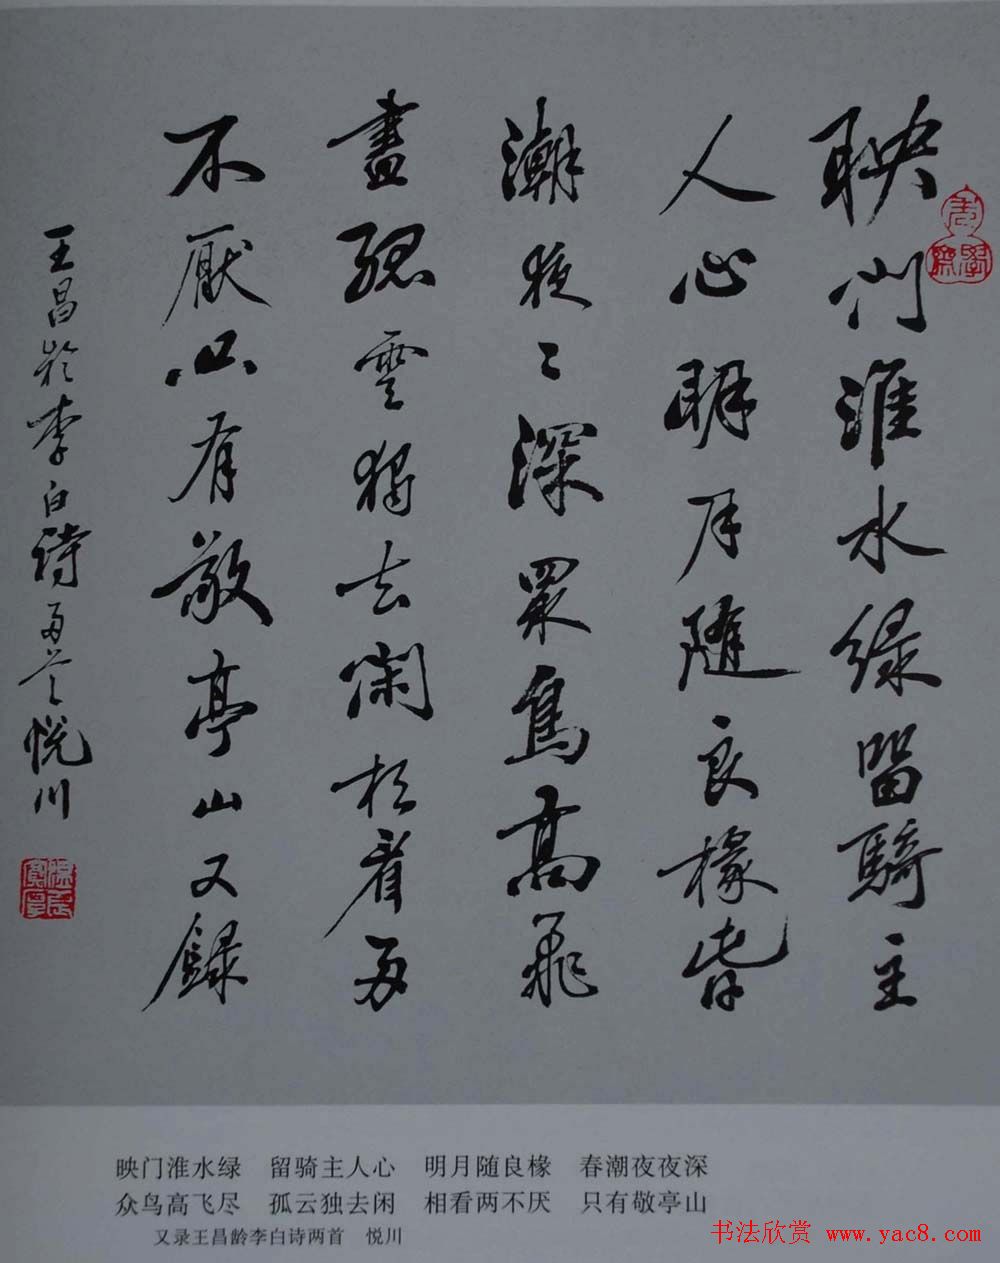 映門淮水緑留騎主
人心明月随良椽皆
潮夜〻深眾鳥高飛
盡孤雲獨去閑相看兩
不厭只有敬亭山又録
王昌齡李白詩兩首悦川
映门淮水绿 留骑主人心 明月随良椽 春潮夜夜深
众鸟高飞尽 孤云独去闲 相看两不厌 只有敬亭山
又录王昌龄李白诗两首 悦川
书法欣赏 www.yac8.com